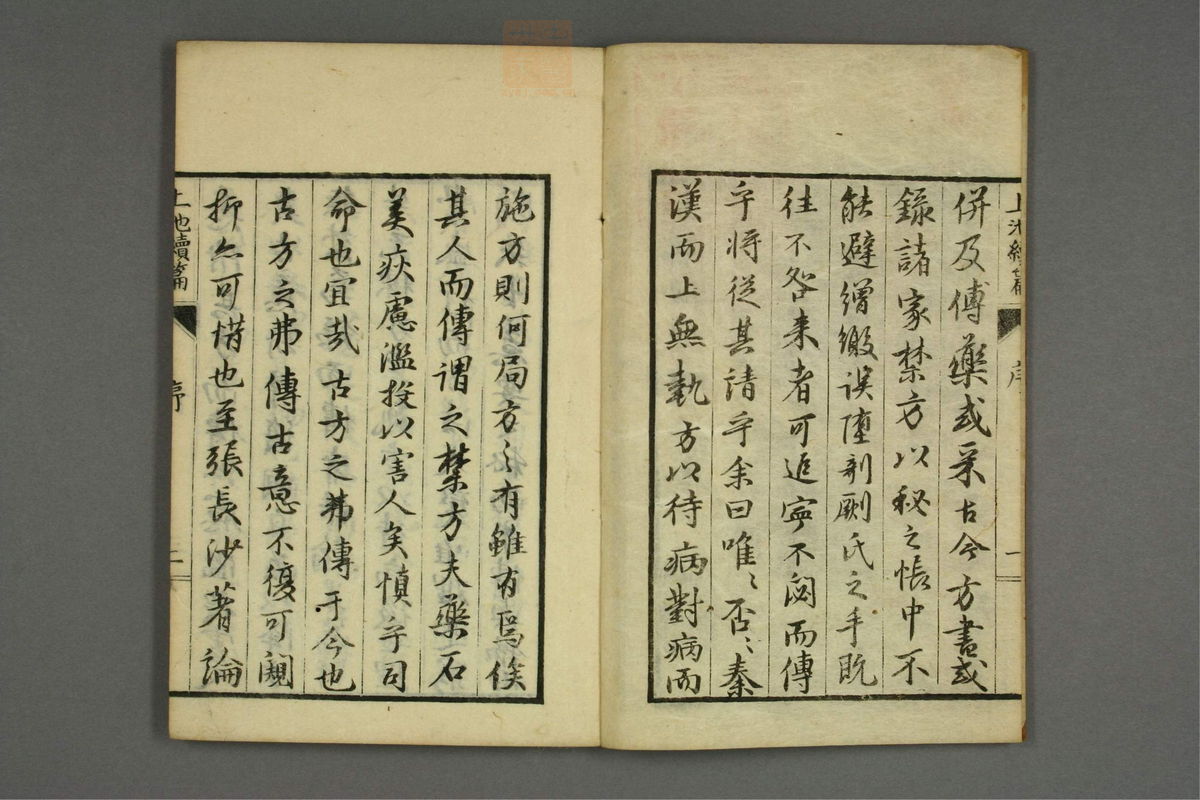 併及傅藥或采古今方書或
錄諸家禁方以秘之帳中不
能避繒繳誤墮剞劂氏之手既
往不咎来者可追寧不閟而傳
乎将従其請乎余曰唯〻否〻秦
漢而上無執方以待病對病而
施方則何局方〻有雖有焉俟
其人而傳謂之禁方夫藥石
美疢慮濫投以害人矣慎乎司
命也宜哉古方之弗傳于今也
古方之弗傳古意不復可覩
抑亦可惜也至張長沙著論
上池續篇
序
一
上池續篇
序
二